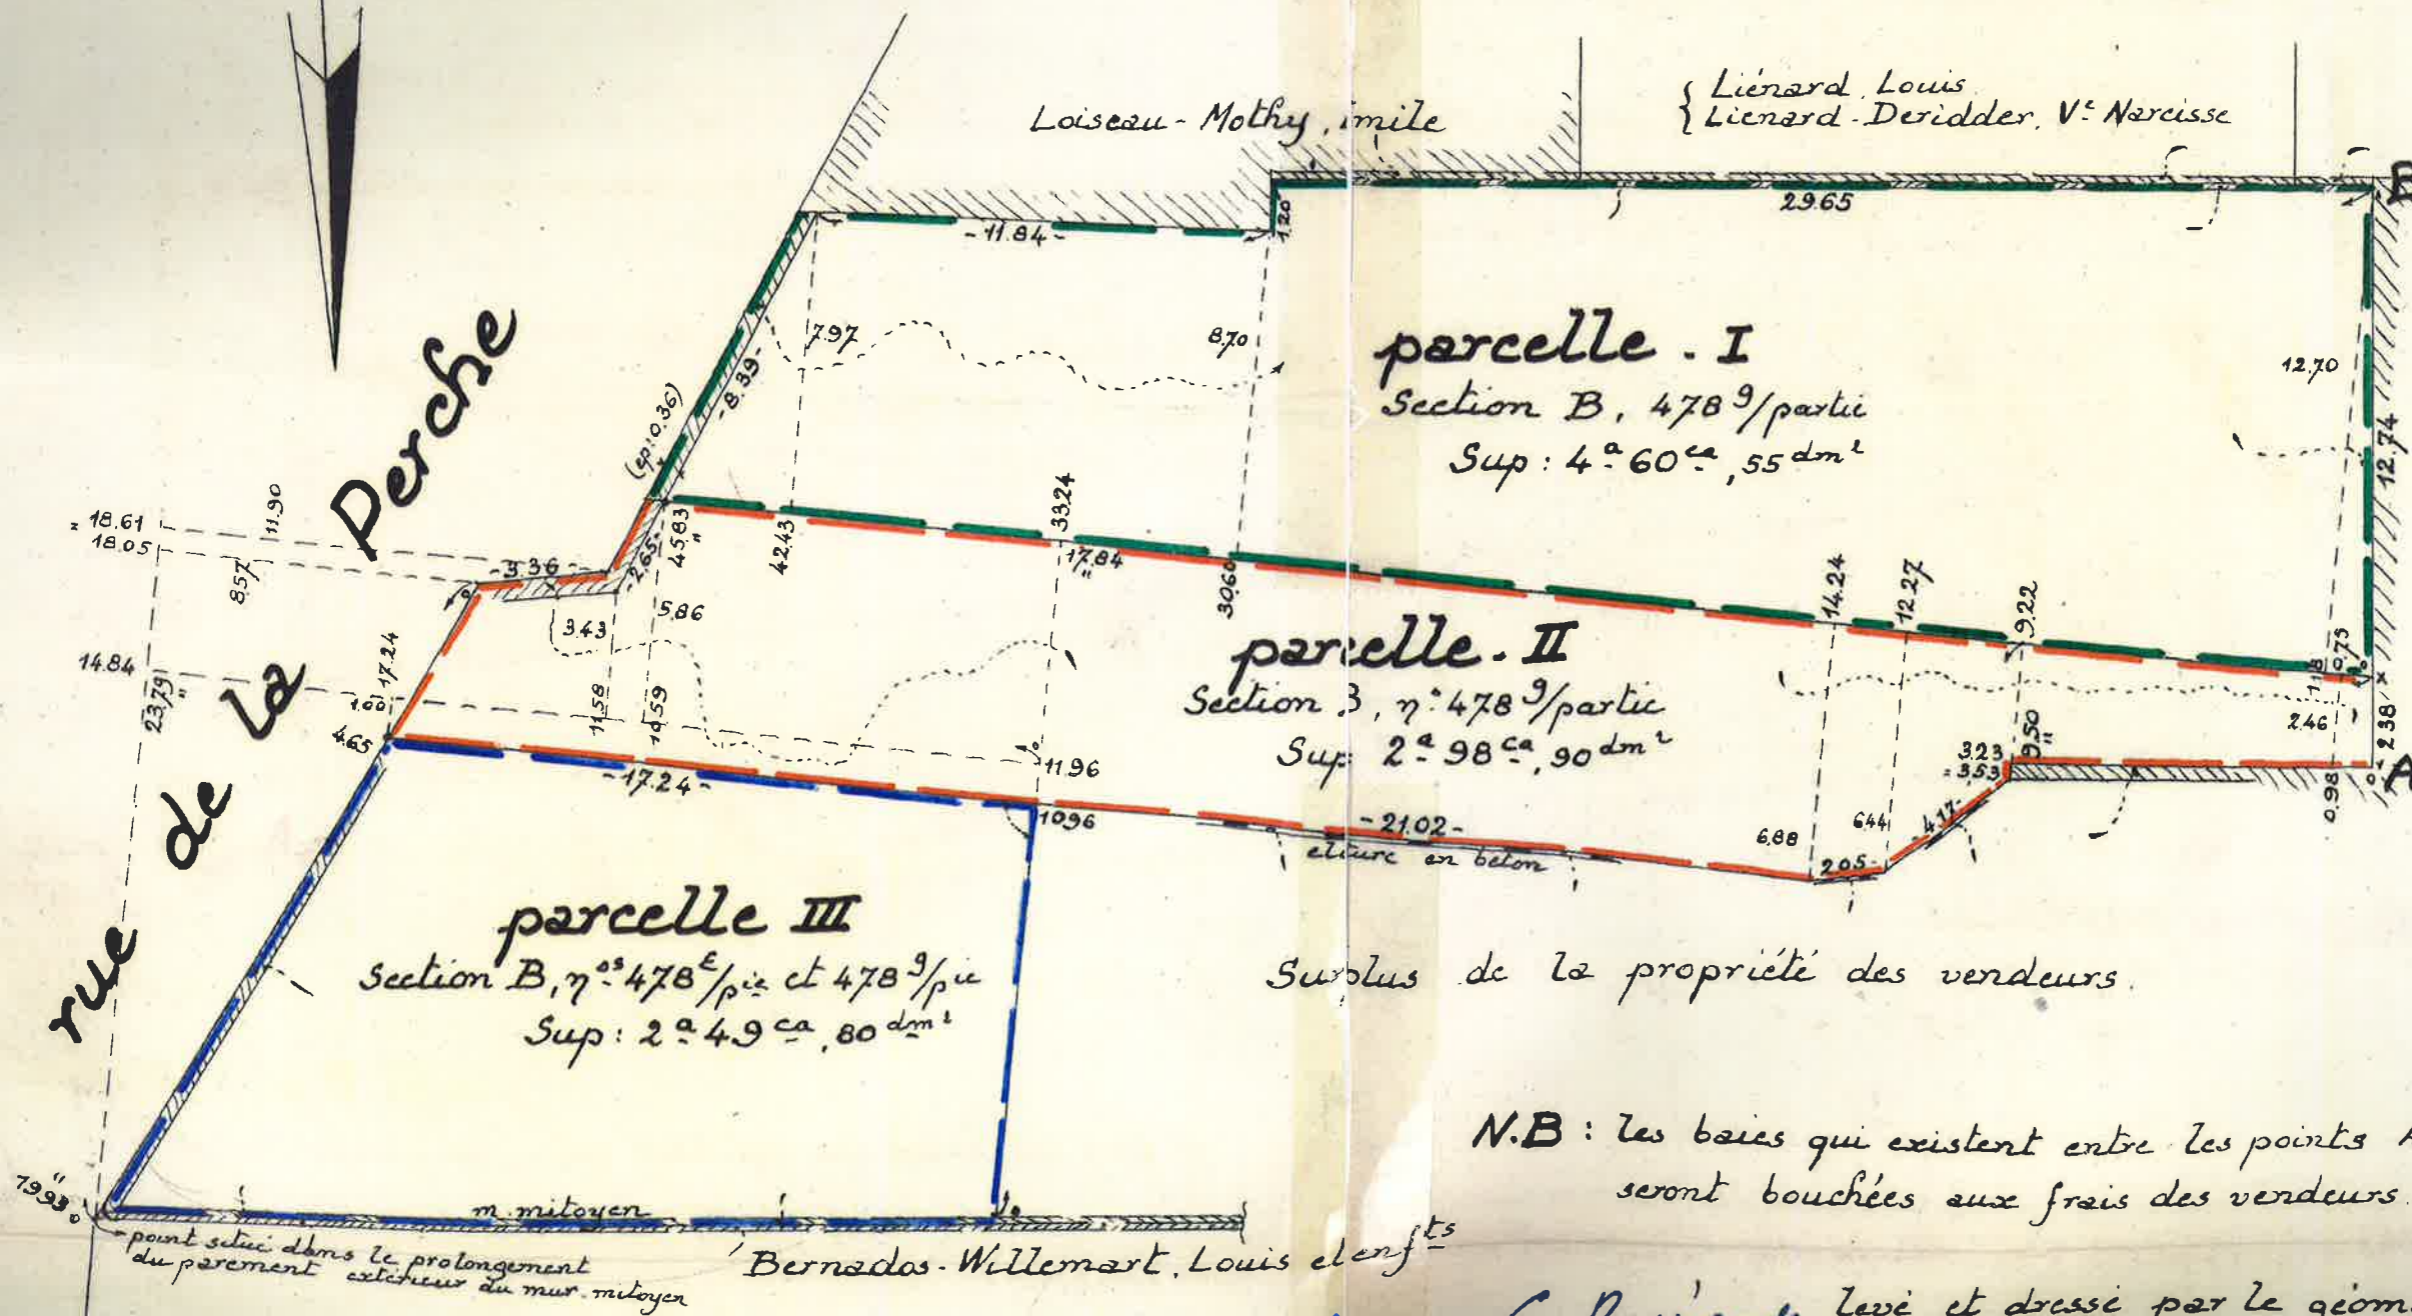 Loiseau - Mothy, Emile
{ Liénard. Louis
{ Lienard - Deridder. Vᵉ Narcisse
B
29.65
- 11.84 -
1.20
7.97
8.70
- 8.39 -
(ep: 0.36)
12.70
12.74
parcelle . I
Section B, 478ᵍ/partie
Sup : 4ᵃ 60ᶜᵃ, 55 dm²
rue de la Perche
= 18.61
18.05
11.90
8.57
- 3.36 -
- 2.65 -
45.83
42.43
33.24
17.84
30.60
14.24
12.27
9.22
1.18
0.75
3.43
5.86
14.84
23.79
17.24
1.00
4.65
11.58
10.59
11.96
parcelle . II
Section B, n° 478ᵍ/partie
Sup: 2ᵃ 98ᶜᵃ, 90 dm²
2.46
2.38
9.50
3.23
= 3.53
A
0.98
- 17.24 -
10.96
- 21.02 -
cloture en béton
6.88
6.44
- 4.17 -
2.05 -
parcelle III
Section B, nᵒˢ 478ᵋ/pie et 478ᵍ/pie
Sup : 2ᵃ 49ᶜᵃ, 80 dm²
Surplus de la propriété des vendeurs.
N.B : les baies qui existent entre les points A
seront bouchées aux frais des vendeurs.
m. mitoyen
point situé dans le prolongement
du parement extérieur du mur mitoyen
Bernados - Willemart, Louis et enfᵗˢ
levé et dressé par le géom